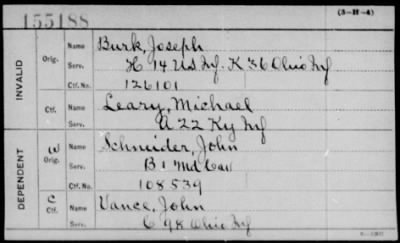 155188
(3-H-4)
INVALID
Orig.
Name
Burk, Joseph
Serv.
H 14 U.S. Inf. K 36 Ohio Inf
Ctf. No.
126101
Ctf.
Name
Leary, Michael
Serv.
A 22 Ky Inf
DEPENDENT
W
Orig.
Name
Schneider, John
Serv.
B 1 Md Cav
Ctf. No.
108539
C
Ctf.
Name
Vance, John
Serv.
C 98 Ohio Inf